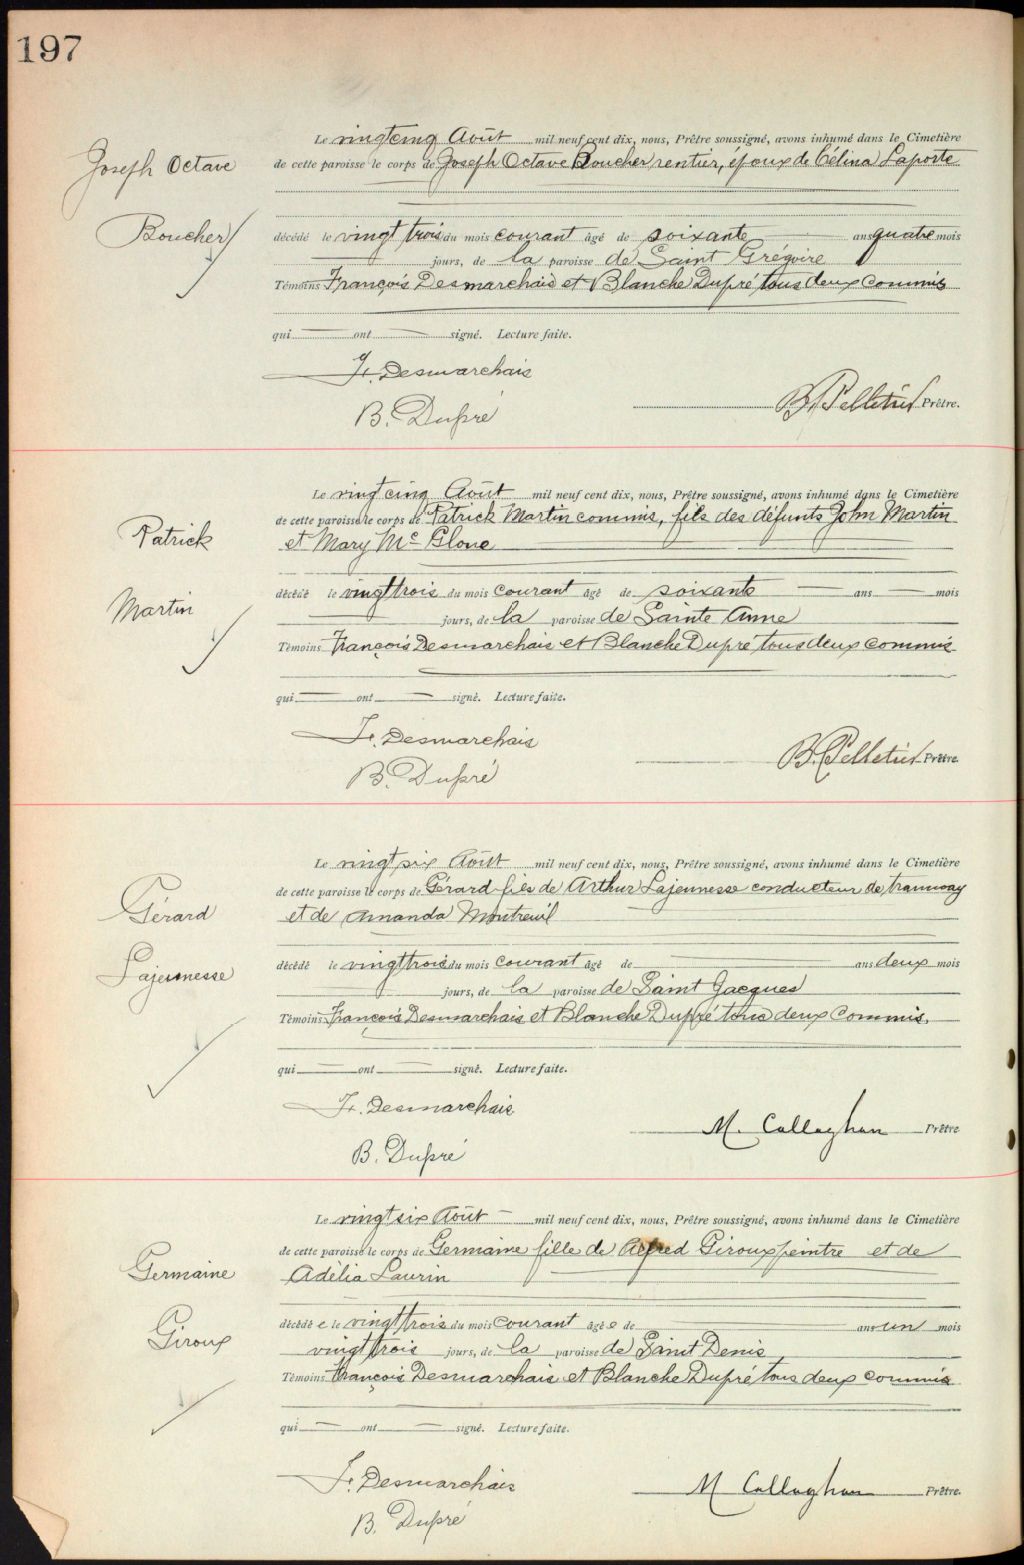 197
Joseph Octave
Boucher
Le vingt cinq Août mil neuf cent dix, nous, Prêtre soussigné, avons inhumé dans le Cimetière
de cette paroisse le corps de Joseph Octave Boucher rentier, époux de Célina Laporte
décédé le vingt trois du mois courant âgé de soixante ans quatre mois
jours, de la paroisse de Saint Grégoire
Témoins François Desmarchais et Blanche Dupré tous deux commis
qui ont signé. Lecture faite.
F. Desmarchais
B. Pelletier Prêtre.
B. Dupré
Patrick
Martin
Le vingt cinq Août mil neuf cent dix, nous, Prêtre soussigné, avons inhumé dans le Cimetière
de cette paroisse le corps de Patrick Martin commis, fils des défunts John Martin
et Mary Mc Glone
décédé le vingt trois du mois courant âgé de soixante ans mois
jours, de la paroisse de Sainte Anne
Témoins François Desmarchais et Blanche Dupré tous deux commis
qui ont signé. Lecture faite.
F. Desmarchais
B. Pelletier Prêtre.
B. Dupré
Gérard
Lajeunesse
Le vingt six Août mil neuf cent dix, nous, Prêtre soussigné, avons inhumé dans le Cimetière
de cette paroisse le corps de Gérard fils de Arthur Lajeunesse conducteur de tramway
et de Amanda Montreuil
décédé le vingt trois du mois courant âgé de ans deux mois
jours, de la paroisse de Saint Jacques
Témoins François Desmarchais et Blanche Dupré tous deux commis.
qui ont signé. Lecture faite.
F. Desmarchais
M. Callaghan Prêtre
B. Dupré
Germaine
Giroux
Le vingt six Août mil neuf cent dix, nous, Prêtre soussigné, avons inhumé dans le Cimetière
de cette paroisse le corps de Germaine fille de Alfred Giroux peintre et de
Adélia Laurin
décédé e le vingt trois du mois courant âgé e de ans un mois
vingt trois jours, de la paroisse de Saint Denis
Témoins François Desmarchais et Blanche Dupré tous deux commis
qui ont signé. Lecture faite.
F. Desmarchais
M Callaghan Prêtre.
B. Dupré